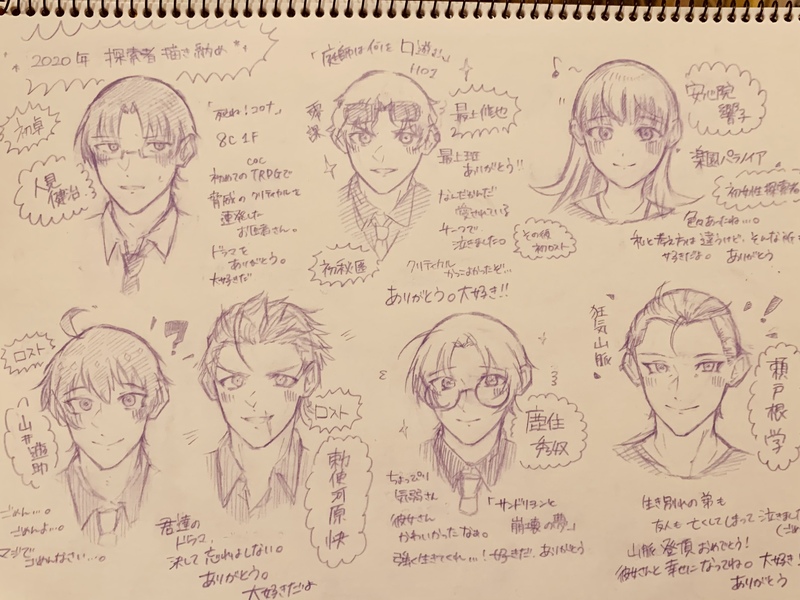 2020年 探索者 描き納め
初卓
人見
健治
「死ね!コロナ」
8C 1F
CoC
初めてのTRPGで
脅威のクリティカルを
連発した
お医者さん。
ドラマを
ありがとう。
大好きだ
「庭師は何を口遊む」
HO1
最上 修也
最上班
ありがとう!!
なんだかんだ
愛されている
チームで
泣きました。
初秘匿
クリティカル
かっこよかったぞ…
ありがとう。大好き!!
安心院
響子
楽園パラノイア
初女性探索者
その後
初ロスト
色々あったね…。
私と考え方は違うけど、そんな所も
好きだよ。 ありがとう
ロスト
山井
ごめん…。
ごめんよ…。
マジで
ごめんなさい…。
ロスト
勅使河原 快
君達の
ドラマ、
決して忘れはしない。
ありがとう。
大好きだよ
ちょっぴり
気弱さん
彼女さん
かわいかったなぁ。
「サンドリヨンと
崩壊の夢」
強く生きてくれ…!好きだ、ありがとう
狂気山脈
瀬戸根 学
生き別れの弟も
友人も亡くしてしまって泣きました
山脈登頂おめでとう!
彼女さんと幸せになってね。大好き!
ありがとう